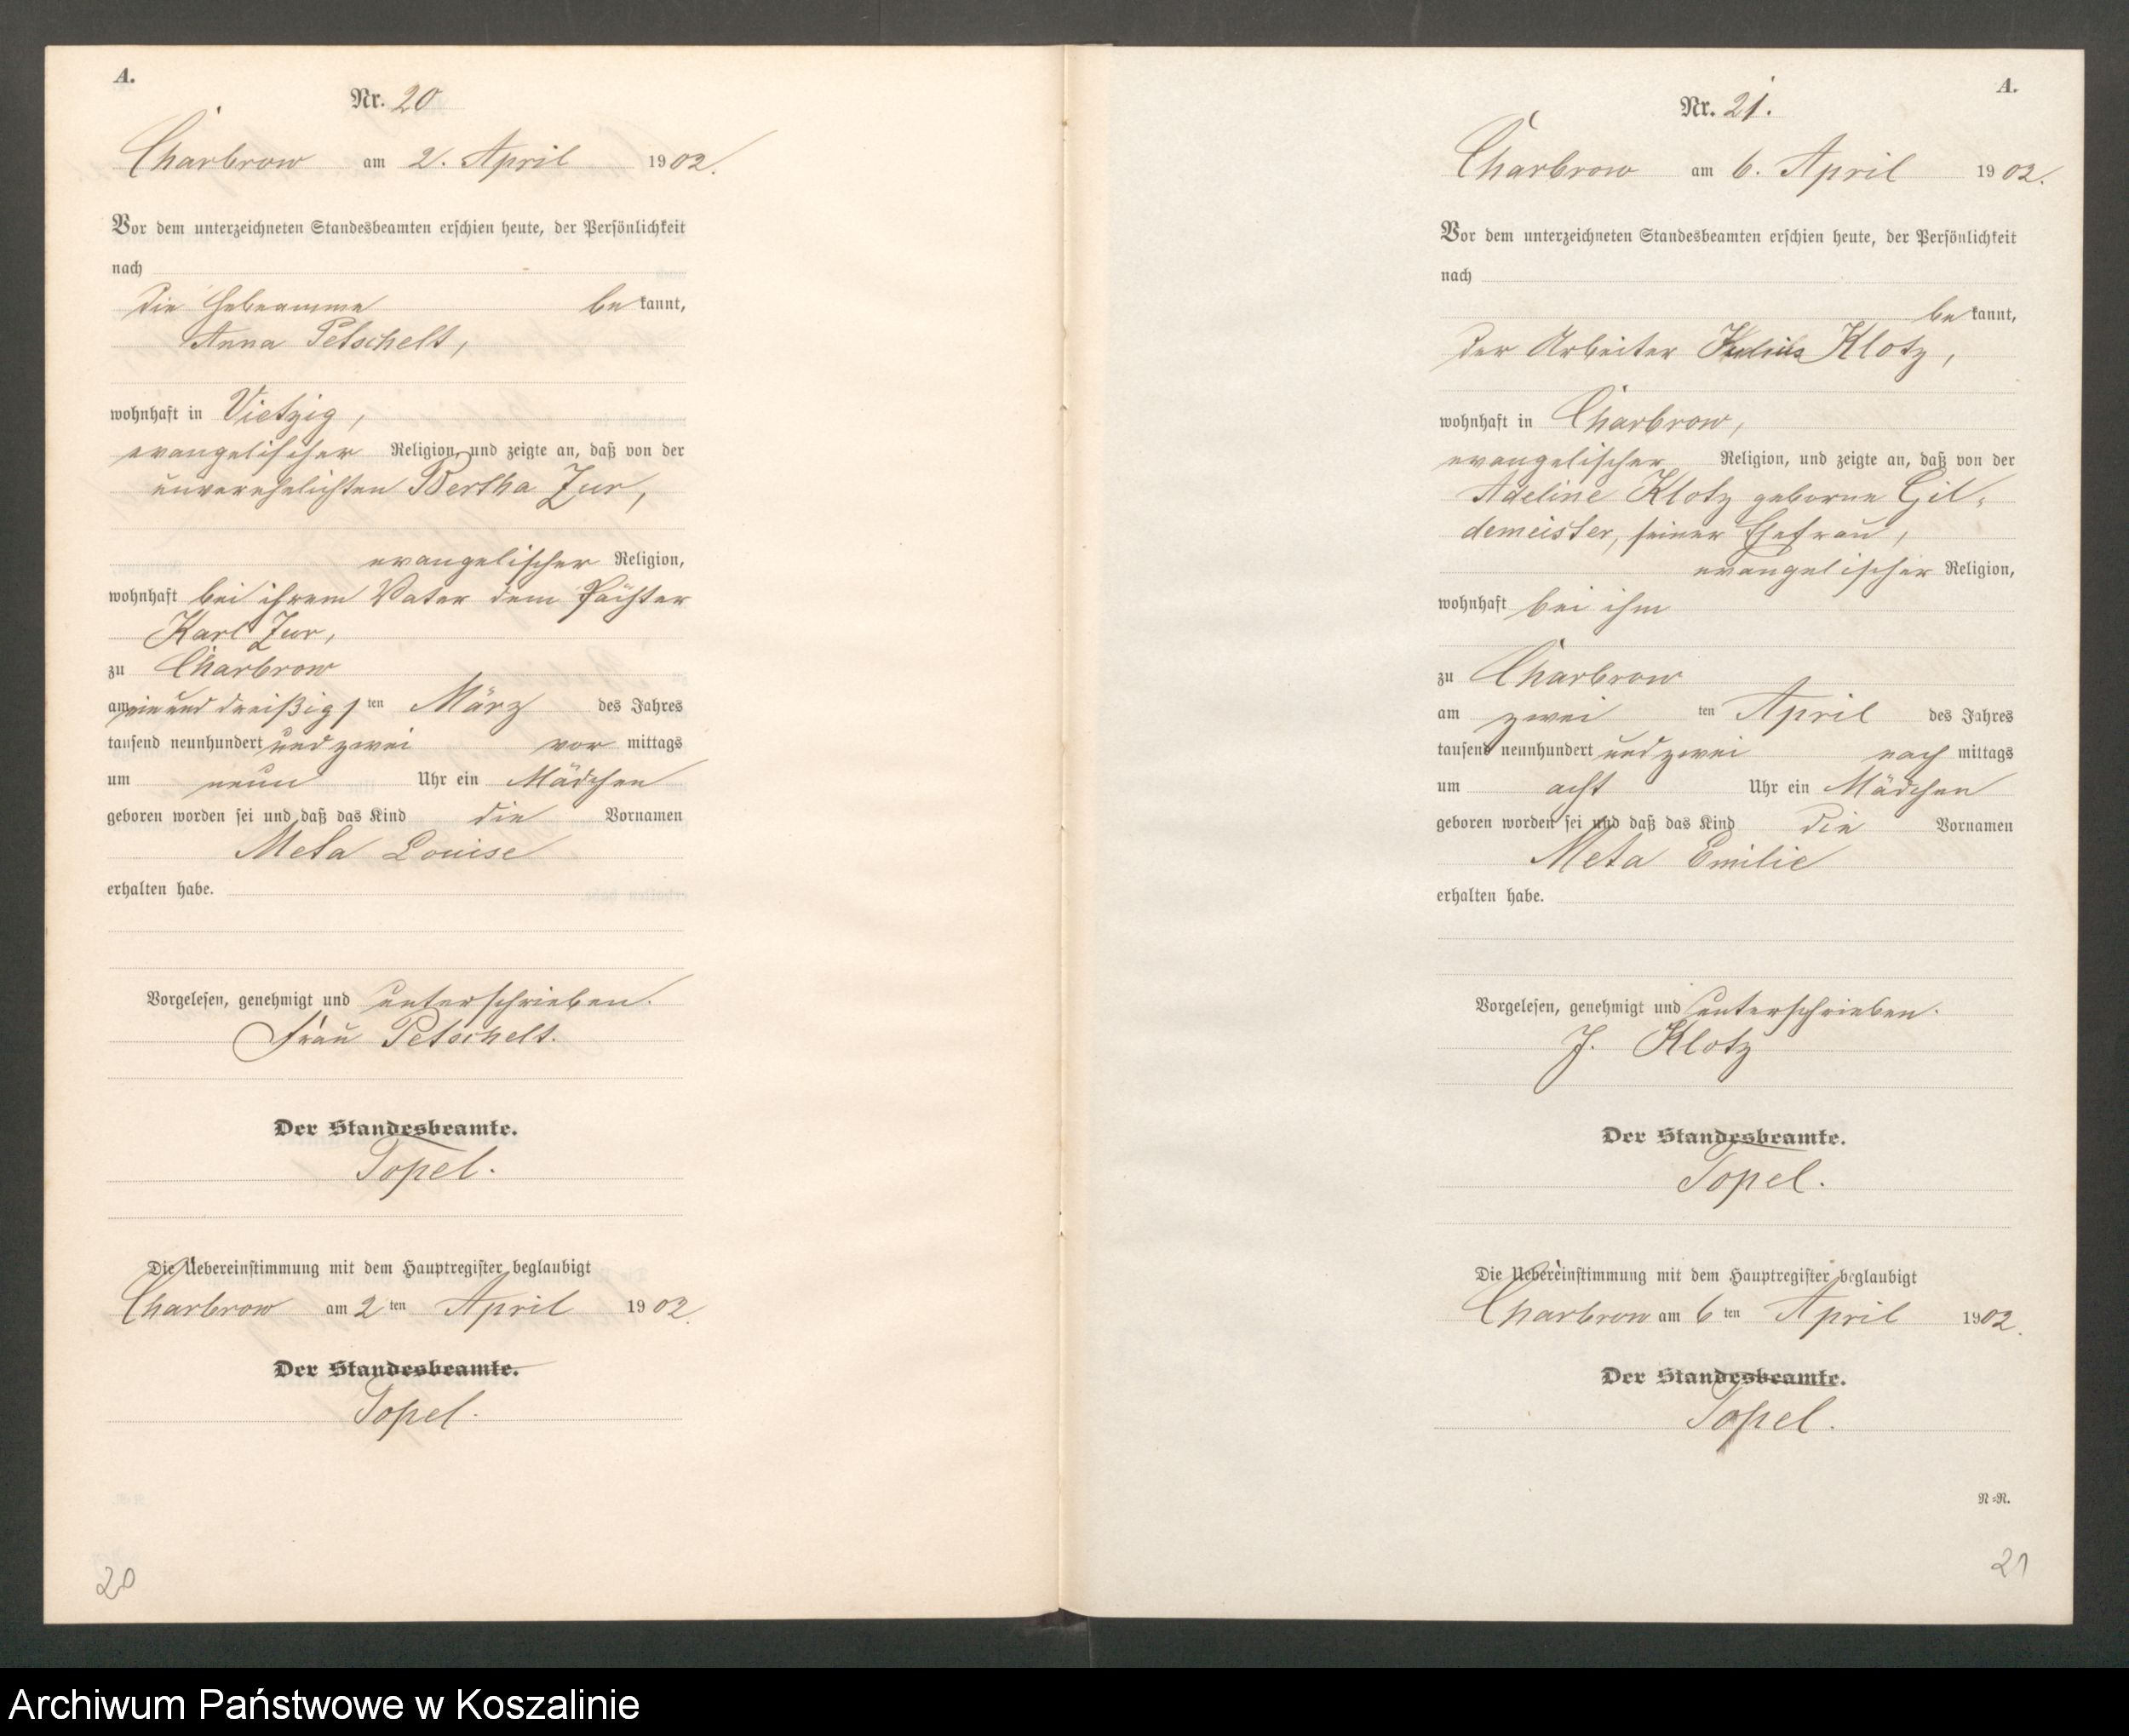 A.
Nr. 20
Charbrow am 2. April 1902.
Vor dem unterzeichneten Standesbeamten erschien heute, der Persönlichkeit
nach
die Hebeamme bekannt,
Anna Petschelt,
wohnhaft in Vietzig,
evangelischer Religion, und zeigte an, daß von der
unverehelichten Bertha Zur,
evangelischer Religion,
wohnhaft bei ihrem Vater dem Pächter
Karl Zur,
zu Charbrow
am einund dreißigsten März des Jahres
tausend neunhundert und zwei vor mittags
um neun Uhr ein Mädchen
geboren worden sei und daß das Kind die Vornamen
Meta Louise
erhalten habe.
Vorgelesen, genehmigt und unterschrieben.
Frau Petschelt.
Der Standesbeamte.
Topel.
Die Uebereinstimmung mit dem Hauptregister beglaubigt
Charbrow am 2ten April 1902.
Der Standesbeamte.
Topel.
20
A.
Nr. 21.
Charbrow am 6. April 1902.
Vor dem unterzeichneten Standesbeamten erschien heute, der Persönlichkeit
nach
bekannt,
der Arbeiter Julius Klotz,
wohnhaft in Charbrow,
evangelischer Religion, und zeigte an, daß von der
Adeline Klotz geborne Gil-
demeister, seiner Ehefrau,
evangelischer Religion,
wohnhaft bei ihm
zu Charbrow
am zwei ten April des Jahres
tausend neunhundert und zwei nach mittags
um acht Uhr ein Mädchen
geboren worden sei und daß das Kind die Vornamen
Meta Emilie
erhalten habe.
Vorgelesen, genehmigt und unterschrieben.
J. Klotz
Der Standesbeamte.
Topel.
Die Uebereinstimmung mit dem Hauptregister beglaubigt
Charbrow am 6ten April 1902.
Der Standesbeamte.
Topel.
N=R.
21
Archiwum Państwowe w Koszalinie